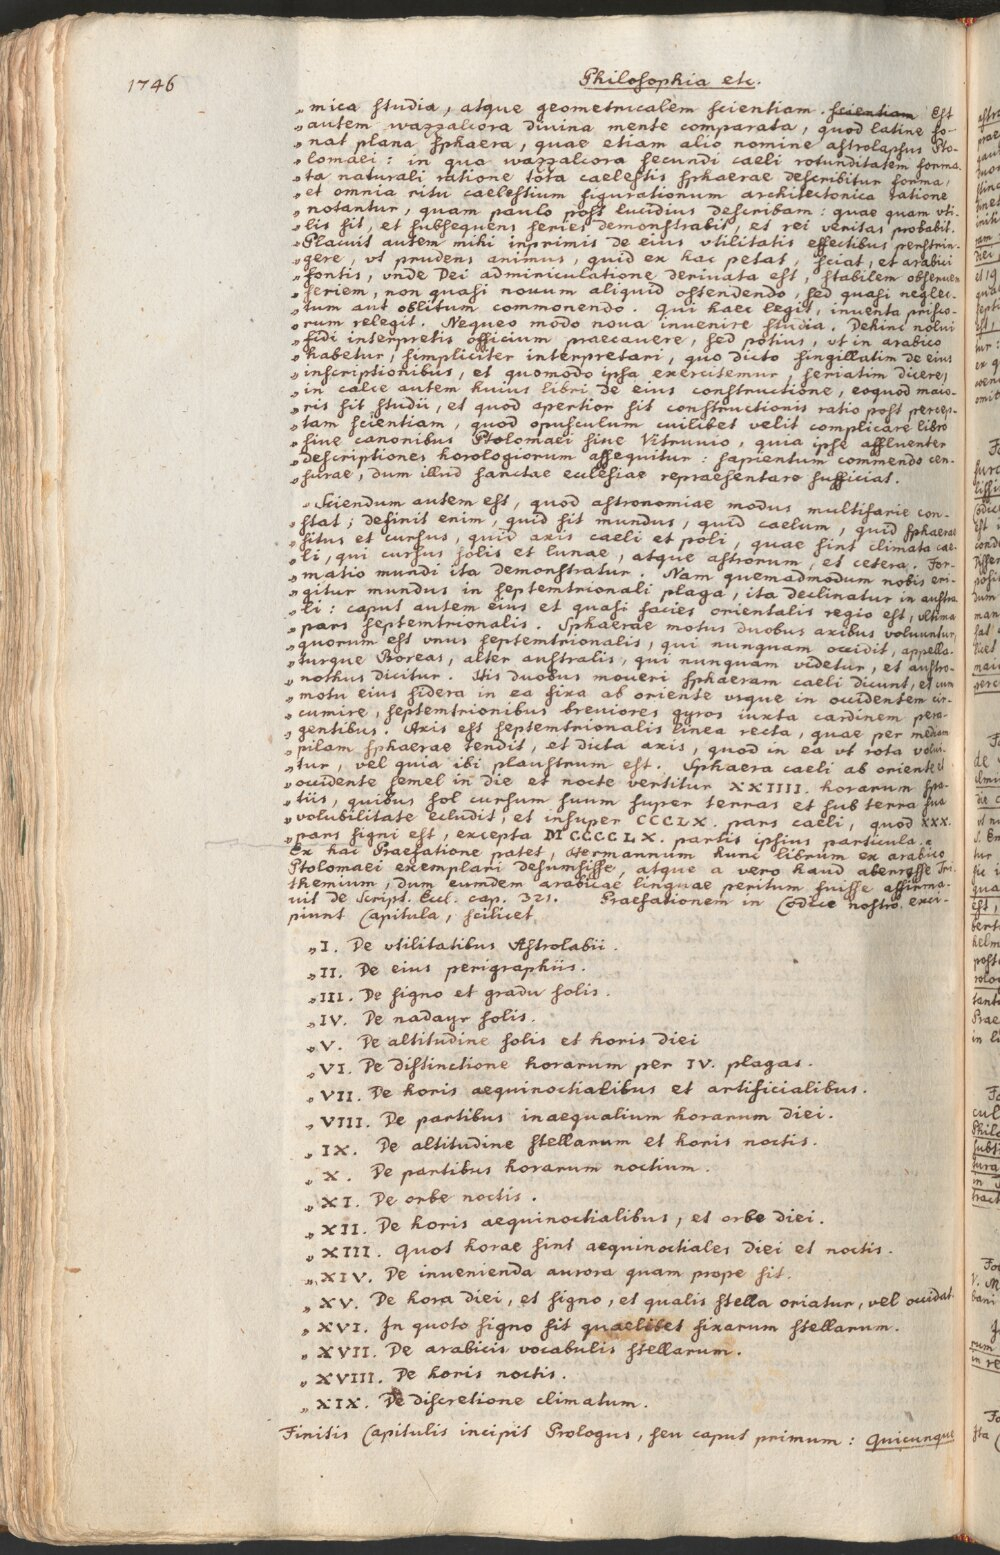 1746
Philosophia etc.
„mica studia, atque geometricalem scientiam. scientiam Est
„autem wazzalcora divina mente comparata, quod latine so-
„nat plana sphaera, quae etiam alio nomine astrolapsus Pto-
„lomaei: in qua wazzalcora secundi caeli rotunditatem forma-
„ta naturali ratione tota caelestis sphaerae describitur forma,
„et omnia ritu caelestium figurationum architectonica ratione
„notantur, quam paulo post lucidius describam: quae quam vti-
„lis sit, et subsequens series demonstrabit, et rei veritas probabit.
„Placuit autem mihi inprimis de eius vtilitatis effectibus perstrin-
„gere, vt prudens animus, quid ex hac petat, sciat, et arabici
„fontis, vnde Dei adminiculatione derivata est, stabilem obseruem
„seriem, non quasi nouum aliquid ostendendo, sed quasi neglec-
„tum aut oblitum commonendo. Qui haec legit, inventa prisco-
„rum relegit. Nequeo modo noua invenire studia. Dehinc nolui
„fidi interpretis officium praecauere, sed potius, vt in arabico
„habetur, simpliciter interpretari, quo dicto singillatim de eius
„inscriptionibus, et quomodo ipsa exercitemur, seriatim dicere,
„in calce autem huius libri de eius constructione, eoquod maio-
„ris sit studii, et quod apertior sit constructionis ratio post percep-
„tam scientiam, quod opusculum cuilibet velit complicare libro
„siue canonibus Ptolomaei siue Vitruuio, quia ipse affluenter
„descriptiones horologiorum assequitur: sapientum commendo cen-
„surae, dum illud sanctae ecclesiae repraesentare sufficiat.
„Sciendum autem est, quod astronomiae modus multifarie con-
„stat; definit enim, quid sit mundus, quid caelum, quid sphaerae
„situs et cursus, quid axis caeli et poli, quae sint climata cae-
„li, qui cursus solis et lunae, atque astrorum, et cetera. For-
„matio mundi ita demonstratur. Nam quemadmodum nobis eri-
„gitur mundus in septemtrionali plaga, ita declinatur in austra-
„li: caput autem eius et quasi facies orientalis regio est, vltima
„pars septemtrionalis. Sphaerae motus duobus axibus voluuntur,
„quorum est vnus septemtrionalis, qui nunquam occidit, appella-
„turque Boreas, alter australis, qui nunquam videtur, et austro-
„nothus dicitur. His duobus moueri sphaeram caeli dicunt, et cum
„motu eius sidera in ea fixa ab oriente vsque in occidentem cir-
„cumire, septemtrionibus breuiores gyros iuxta cardinem pera-
„gentibus. Axis est septemtrionalis linea recta, quae per mediam
„pilam sphaerae tendit, et dicta axis, quod in ea vt rota volui-
„tur, vel quia ibi plaustrum est. Sphaera caeli ab oriente et
„occidente semel in die et nocte vertitur XXIIII. horarum spa-
„tiis, quibus sol cursum suum super terras et sub terra sua
„volubilitate cludit, et insuper CCCLX. pars caeli, quod XXX.
„pars signi est, excepta MCCCCLX. partis ipsius particula.
Ex hac Praefatione patet, Hermannum hunc librum ex arabico
Ptolomaei exemplari desumsisse, atque a vero haud aberrasse Tri-
themium, dum eumdem arabicae linguae peritum fuisse affirma-
vit de Script. Eccl. cap. 321. Praefationem in Codice nostro exci-
piunt Capitula, scilicet
„I. De vtilitatibus Astrolabii.
„II. De eius perigraphiis.
„III. De signo et gradu solis.
„IV. De nadayr solis.
„V. De altitudine solis et horis diei
„VI. De distinctione horarum per IV. plagas.
„VII. De horis aequinoctialibus et artificialibus.
„VIII. De partibus inaequalium horarum diei.
„IX. De altitudine stellarum et horis noctis.
„X. De partibus horarum noctium.
„XI. De orbe noctis.
„XII. De horis aequinoctialibus, et orbe diei.
„XIII. Quot horae sint aequinoctiales diei et noctis.
„XIV. De invenienda aurora quam prope sit.
„XV. De hora diei, et signo, et qualis stella oriatur, vel occidat.
„XVI. In quoto signo sit quaelibet fixarum stellarum.
„XVII. De arabicis vocabulis stellarum.
„XVIII. De horis noctis.
„XIX. De discretione climatum.
Finitis Capitulis incipit Prologus, seu caput primum: Quicunque